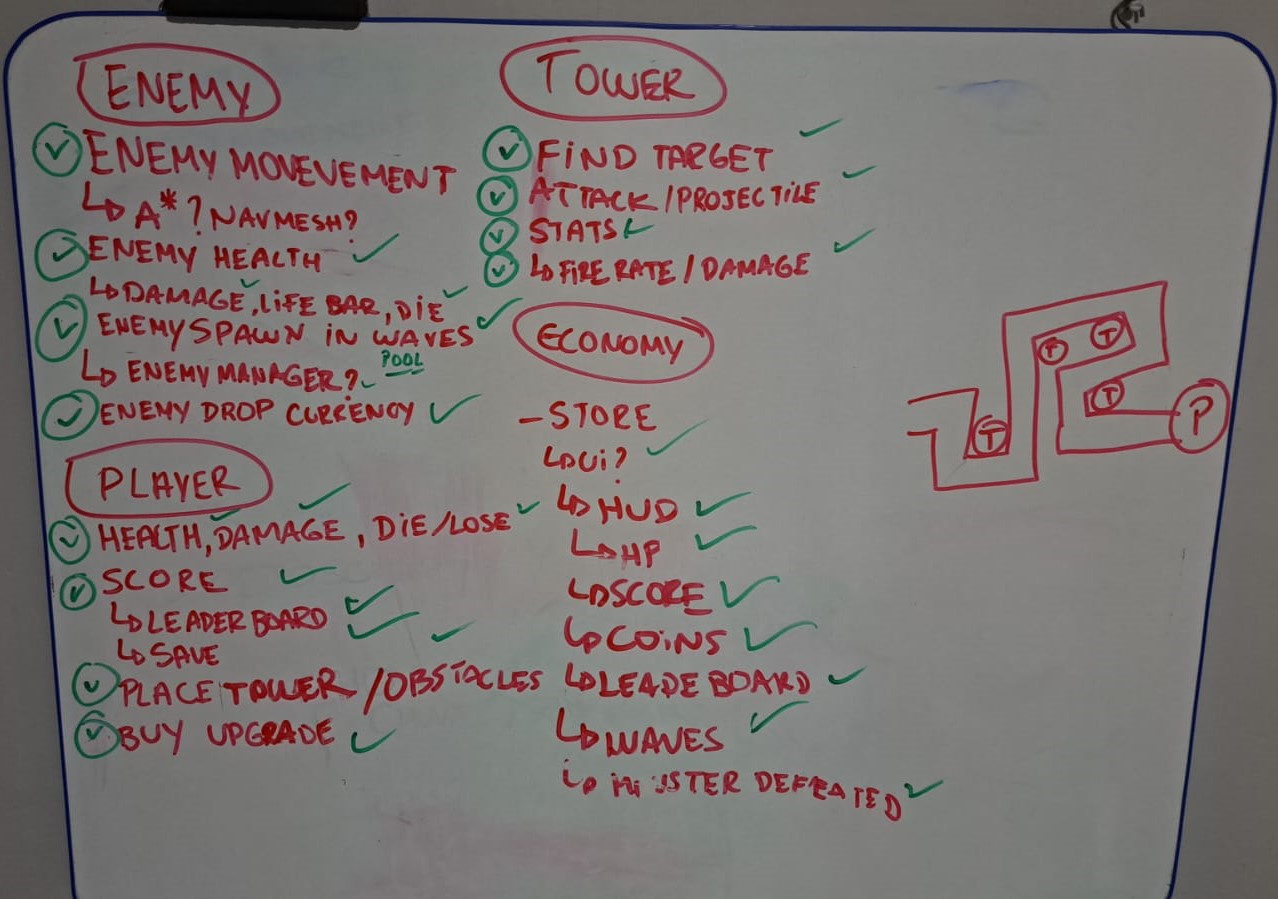 ENEMY
ENEMY MOVEVEMENT
↳ A* ? NAVMESH?
ENEMY HEALTH
↳ DAMAGE, LIFE BAR, DIE
ENEMY SPAWN IN WAVES
↳ ENEMY MANAGER? POOL
ENEMY DROP CURRENCY
PLAYER
HEALTH, DAMAGE, DIE/LOSE
SCORE
↳ LEADER BOARD
↳ SAVE
PLACE TOWER / OBSTACLES
BUY UPGRADE
TOWER
FIND TARGET
ATTACK / PROJECTILE
STATS
↳ FIRE RATE / DAMAGE
ECONOMY
- STORE
↳ Ui?
↳ HUD
↳ HP
↳ SCORE
↳ COINS
↳ LEADE BOARD
↳ WAVES
↳ DEFEATED
T
T
T
T
P